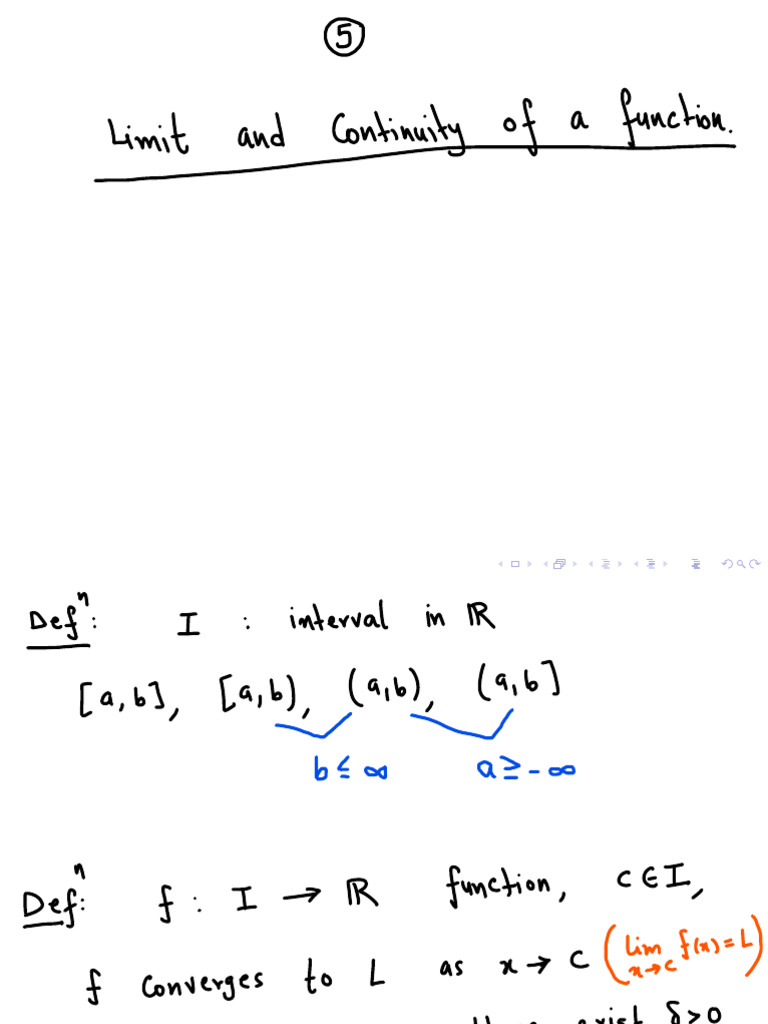 ⑤
Limit and Continuity of a function.
Defⁿ: I : interval in ℝ
[a,b], [a,b), (a,b), (a,b]
b ≤ ∞ a ≥ -∞
Defⁿ: f : I → ℝ function, c ∈ I,
f converges to L as x → c (lim_{x→c} f(x) = L)
there exist δ > 0